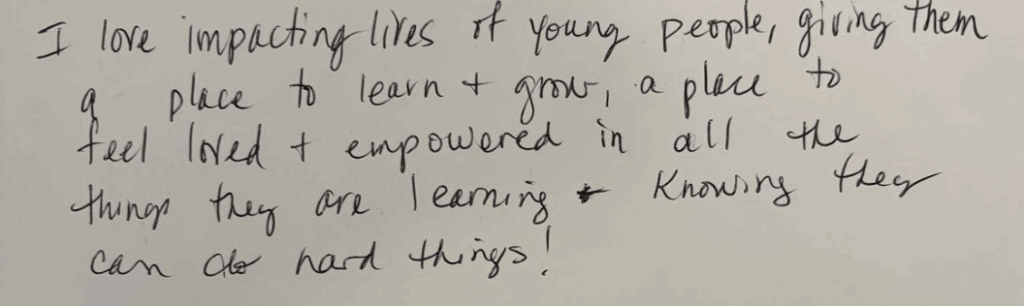 I love impacting lives of young people, giving them
a place to learn + grow, a place to
feel loved + empowered in all the
things they are learning + Knowing they
can do hard things!